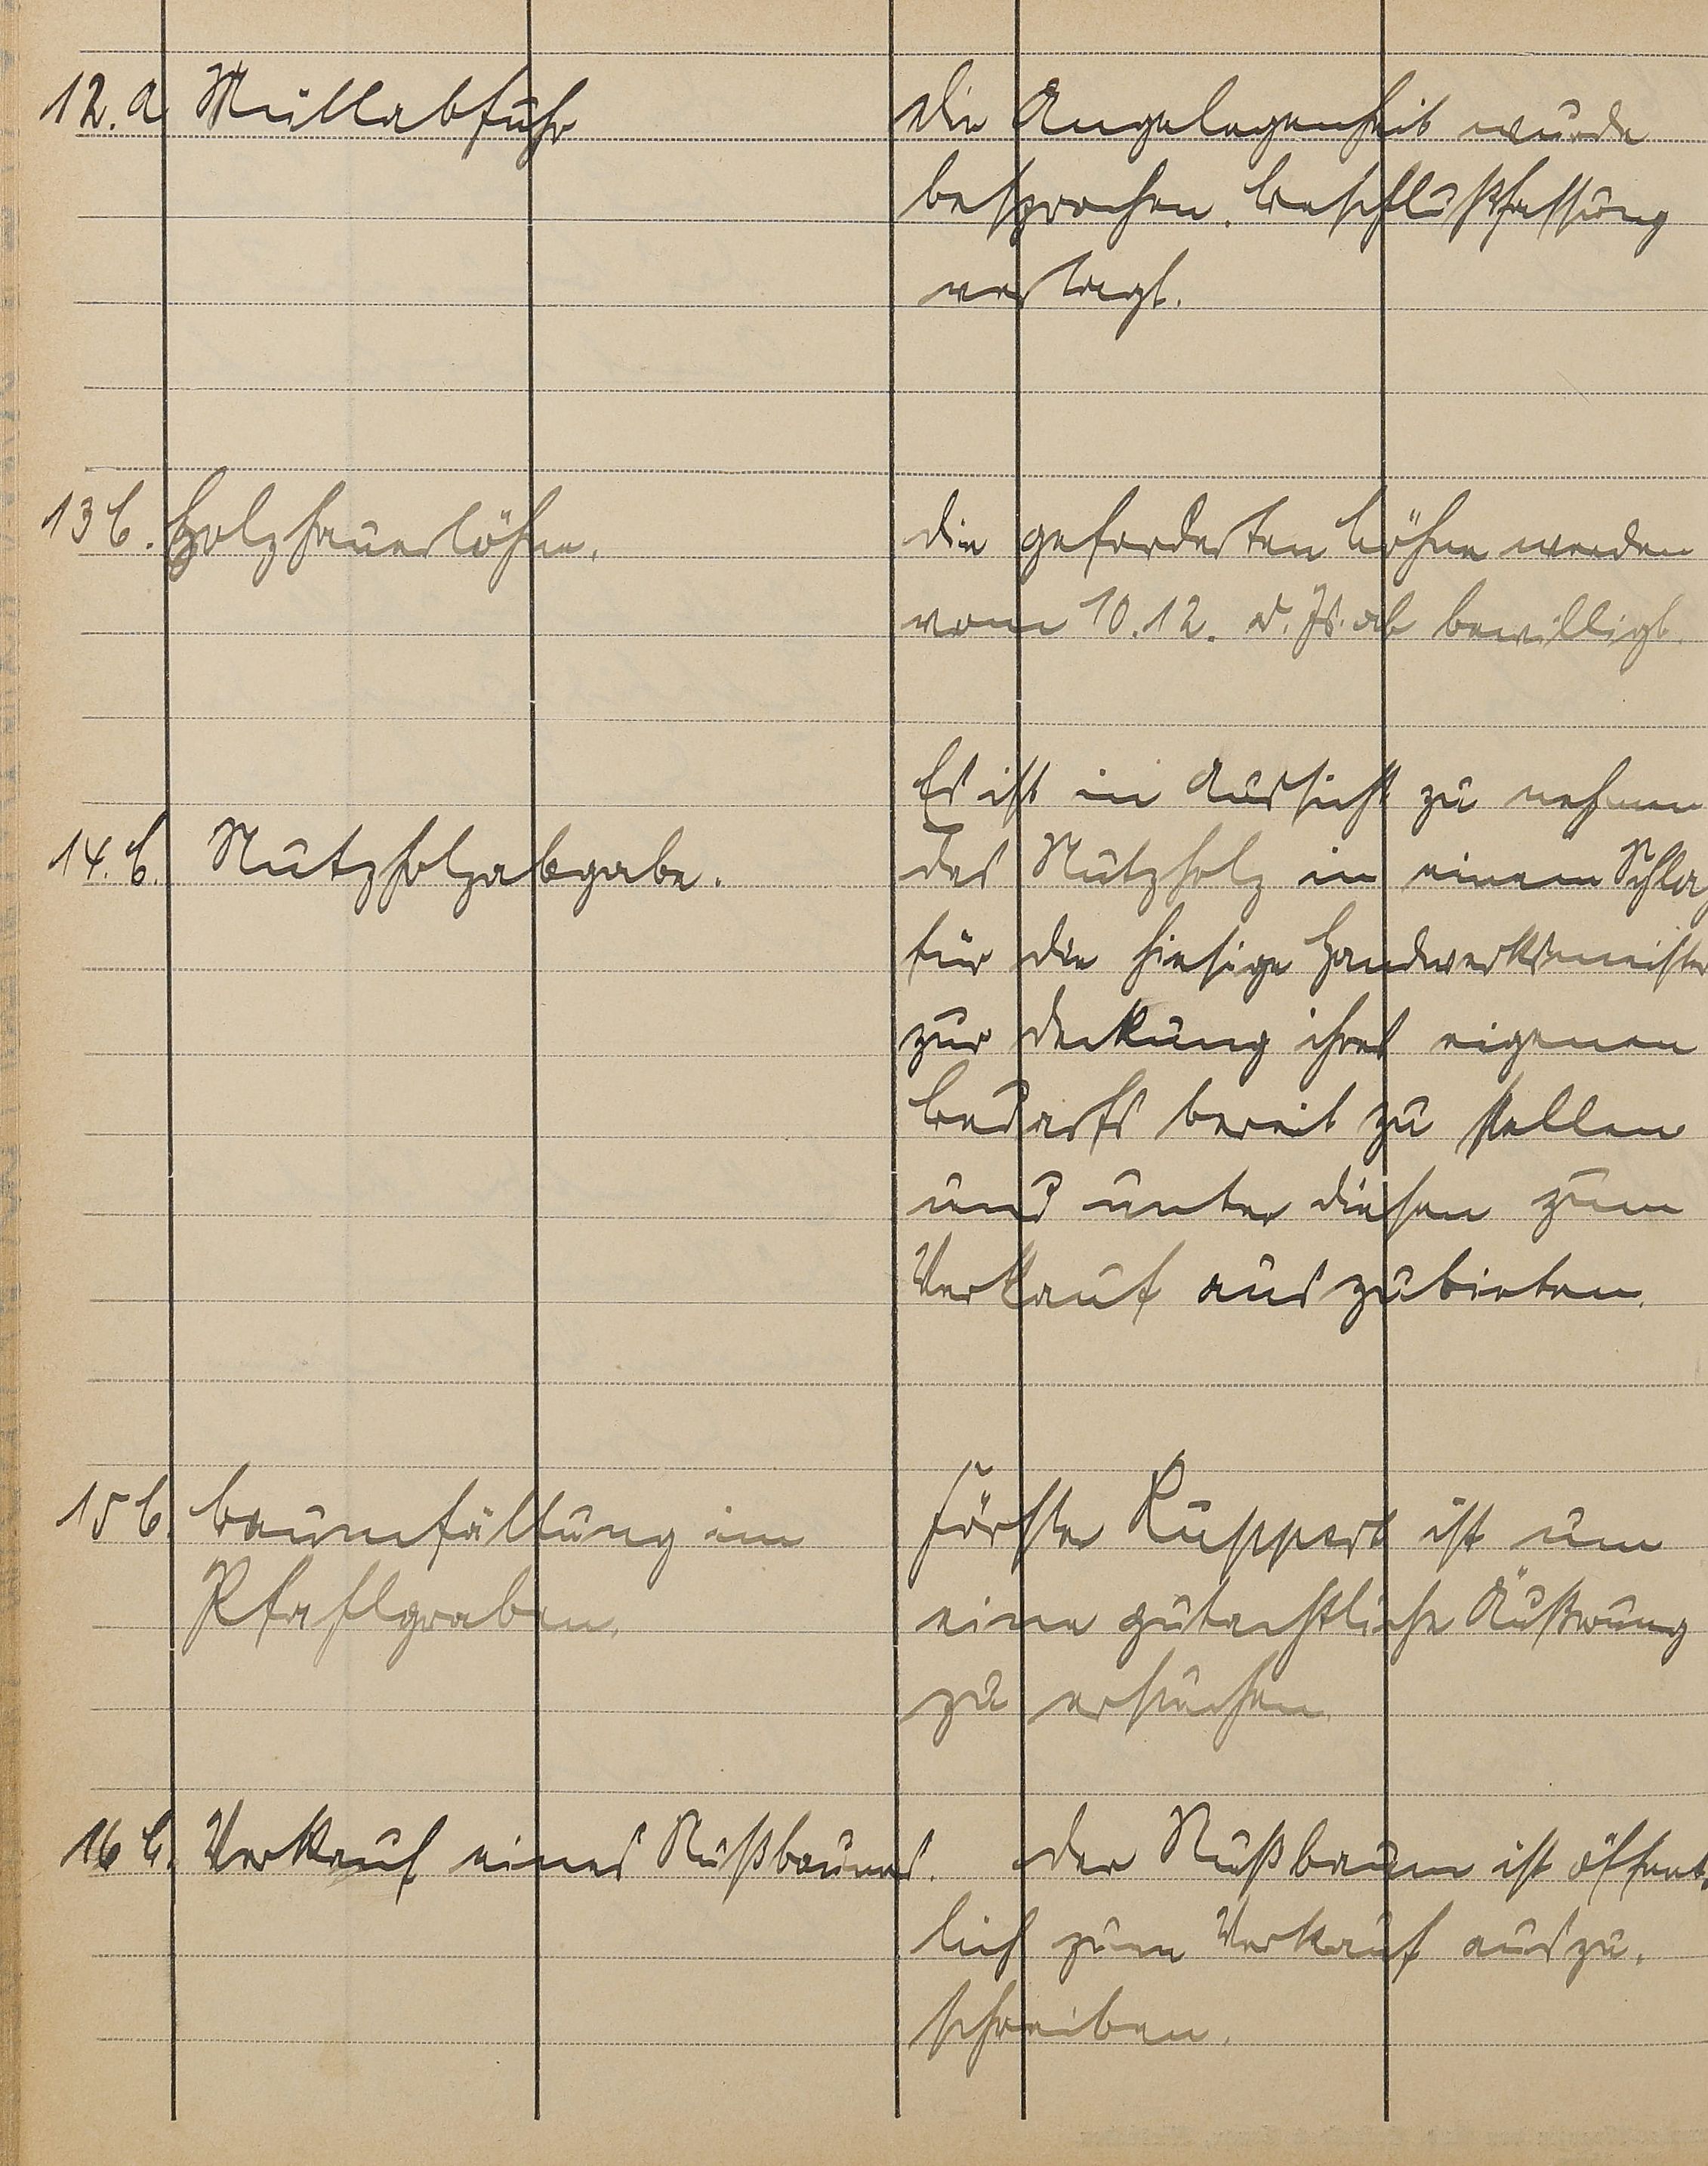 12. a Müllabfuhr
Die Angelegenheit wurde
besprochen. Beschlußfassung
vertagt.
13 b. Holzhauerlöhne.
Die geforderten Löhne werden
vom 10.12. d. Js. ab bewilligt.
Es ist in Aussicht zu nehmen
14. b. Nutzholzabgabe.
das Nutzholz in einem Schlag
für die hiesige Handwerksmeister
zur Deckung ihres eigenen
Bedarfs bereit zu stellen
und unter diesen zum
Verkauf auszubieten.
15 b. Baumfällung im
Pfahlgraben.
Förster Ruppert ist um
eine gutachtliche Äußerung
zu ersuchen.
16 b. Verkauf eines Nußbaumes.
Der Nußbaum ist öffent-
lich zum Verkauf auszu-
schreiben.